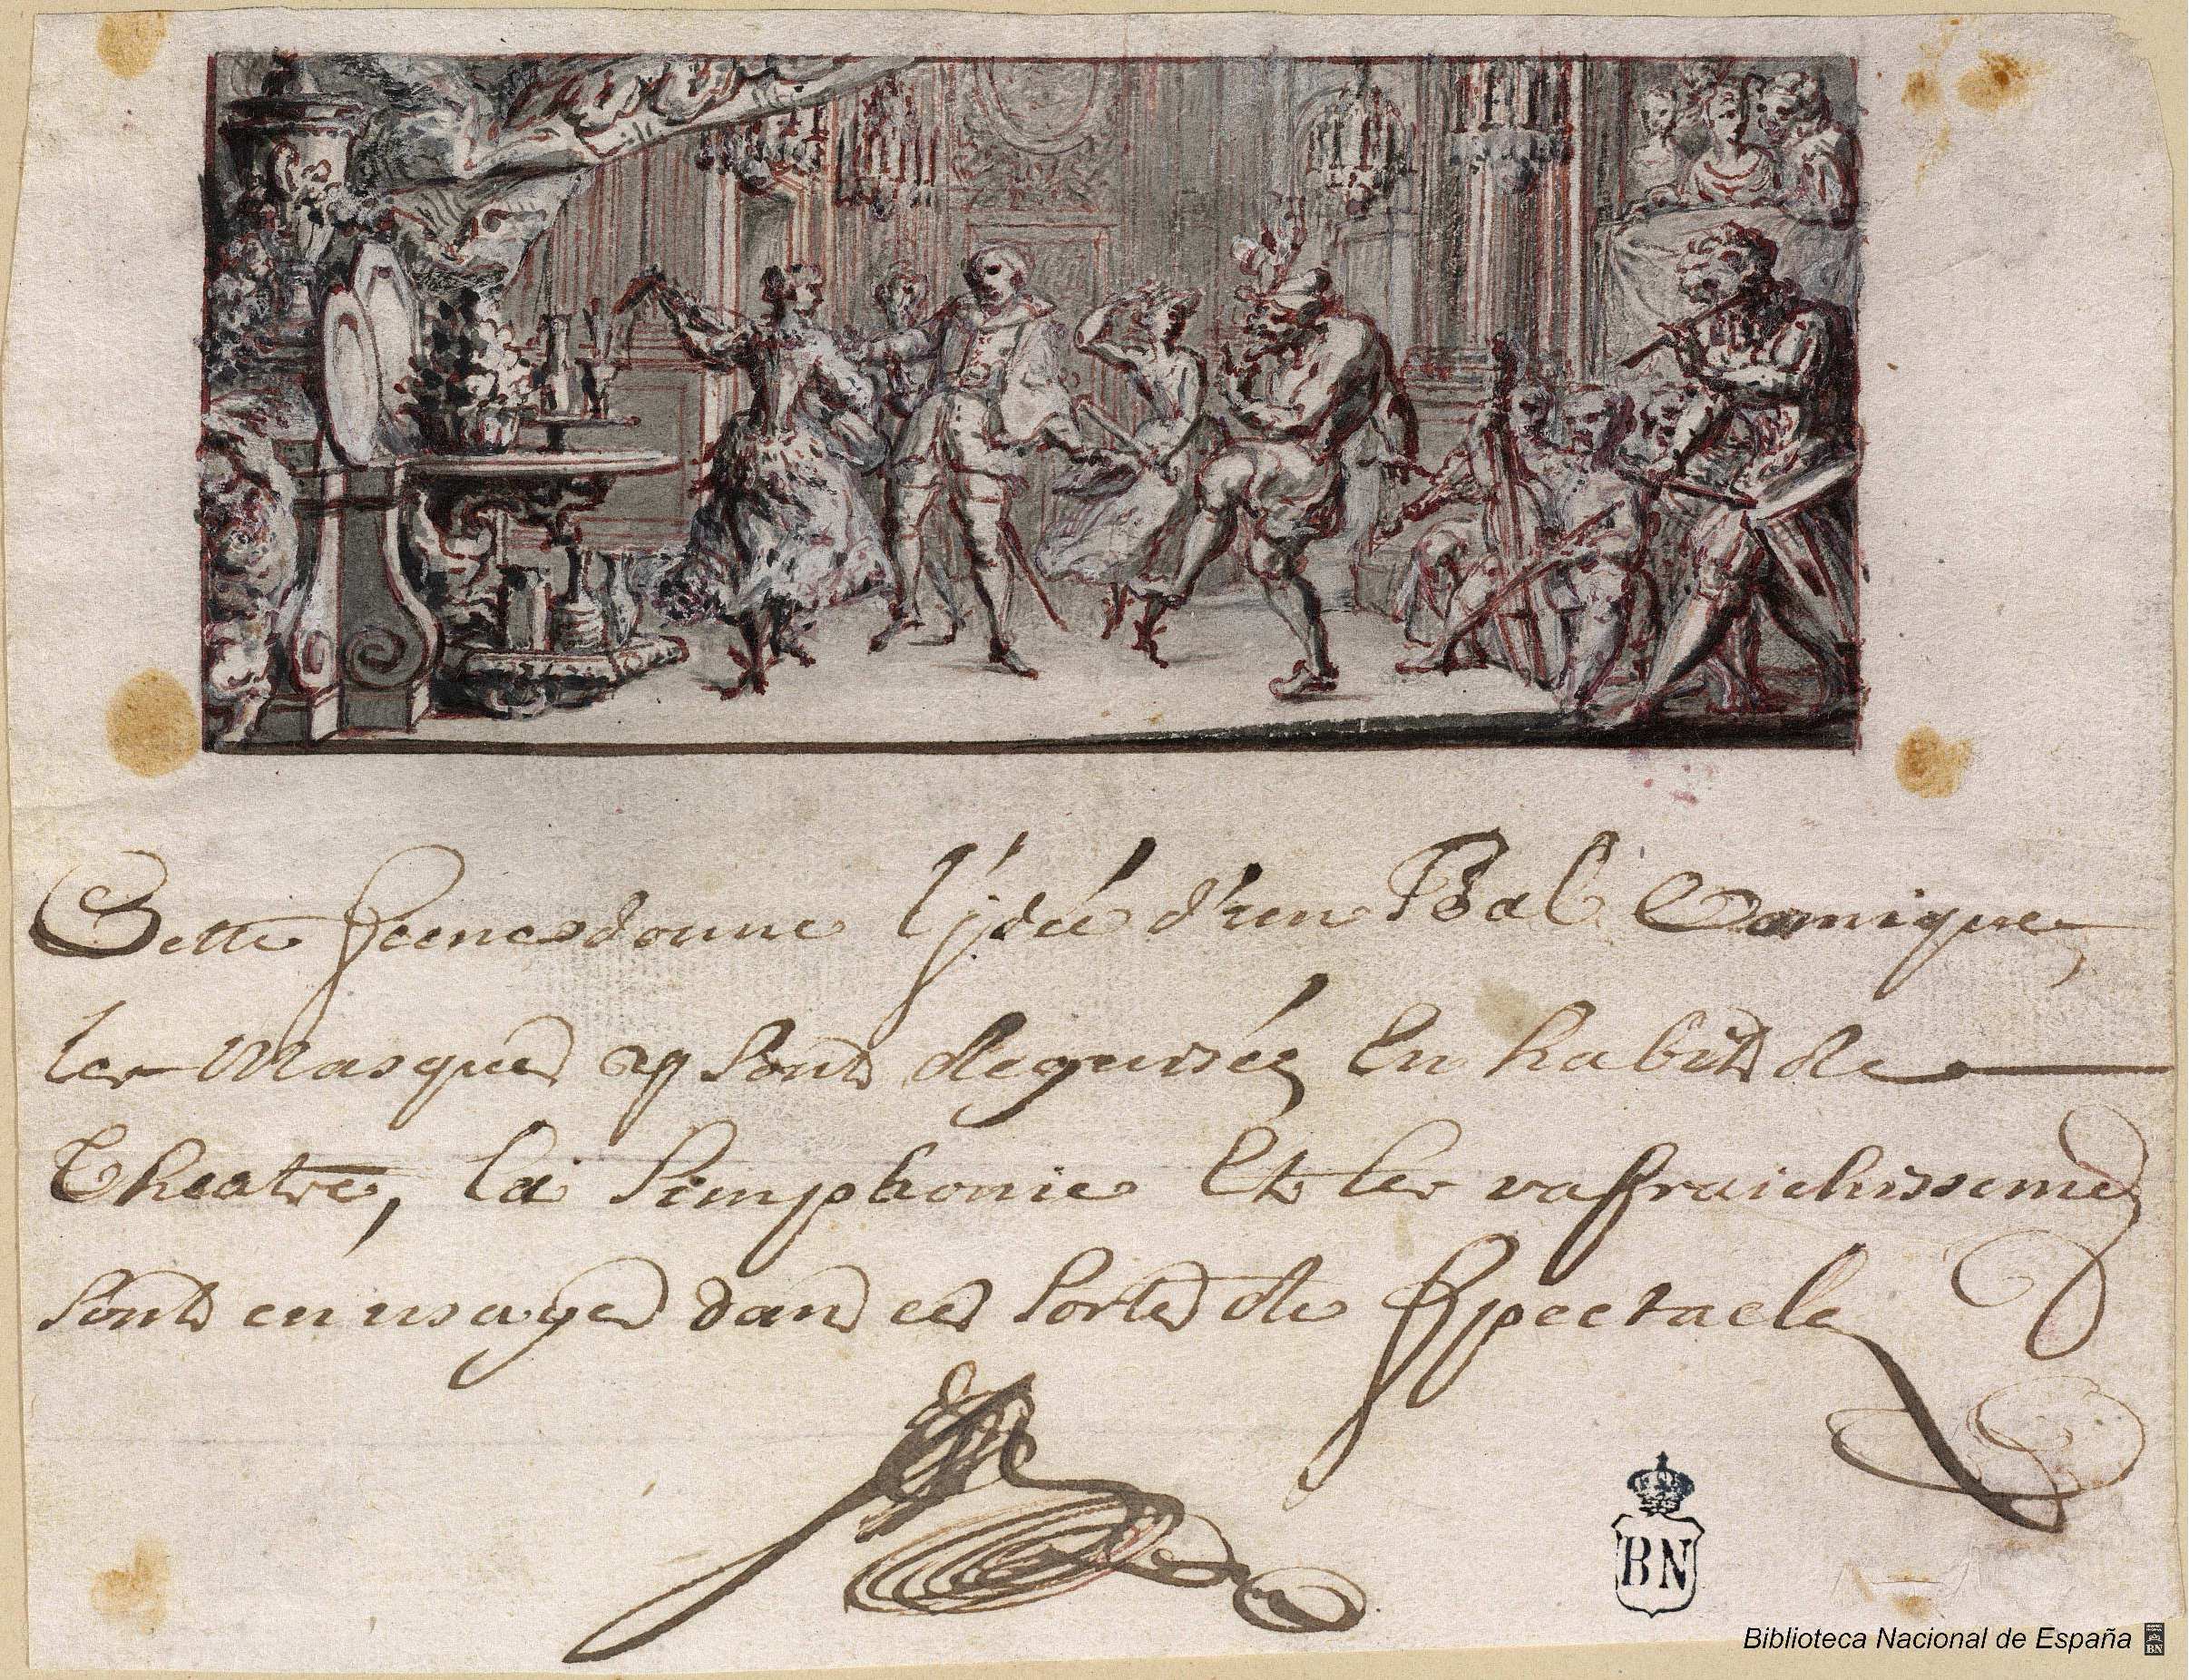 Cette Scene donne l'jdée d'un Bal Comique
les Masques y sont deguisés En habits de
Theatre, la Simphonie Et les raffraichissemens
sont en usages dans ces sortes de Spectacle
BN
Biblioteca Nacional de España BN